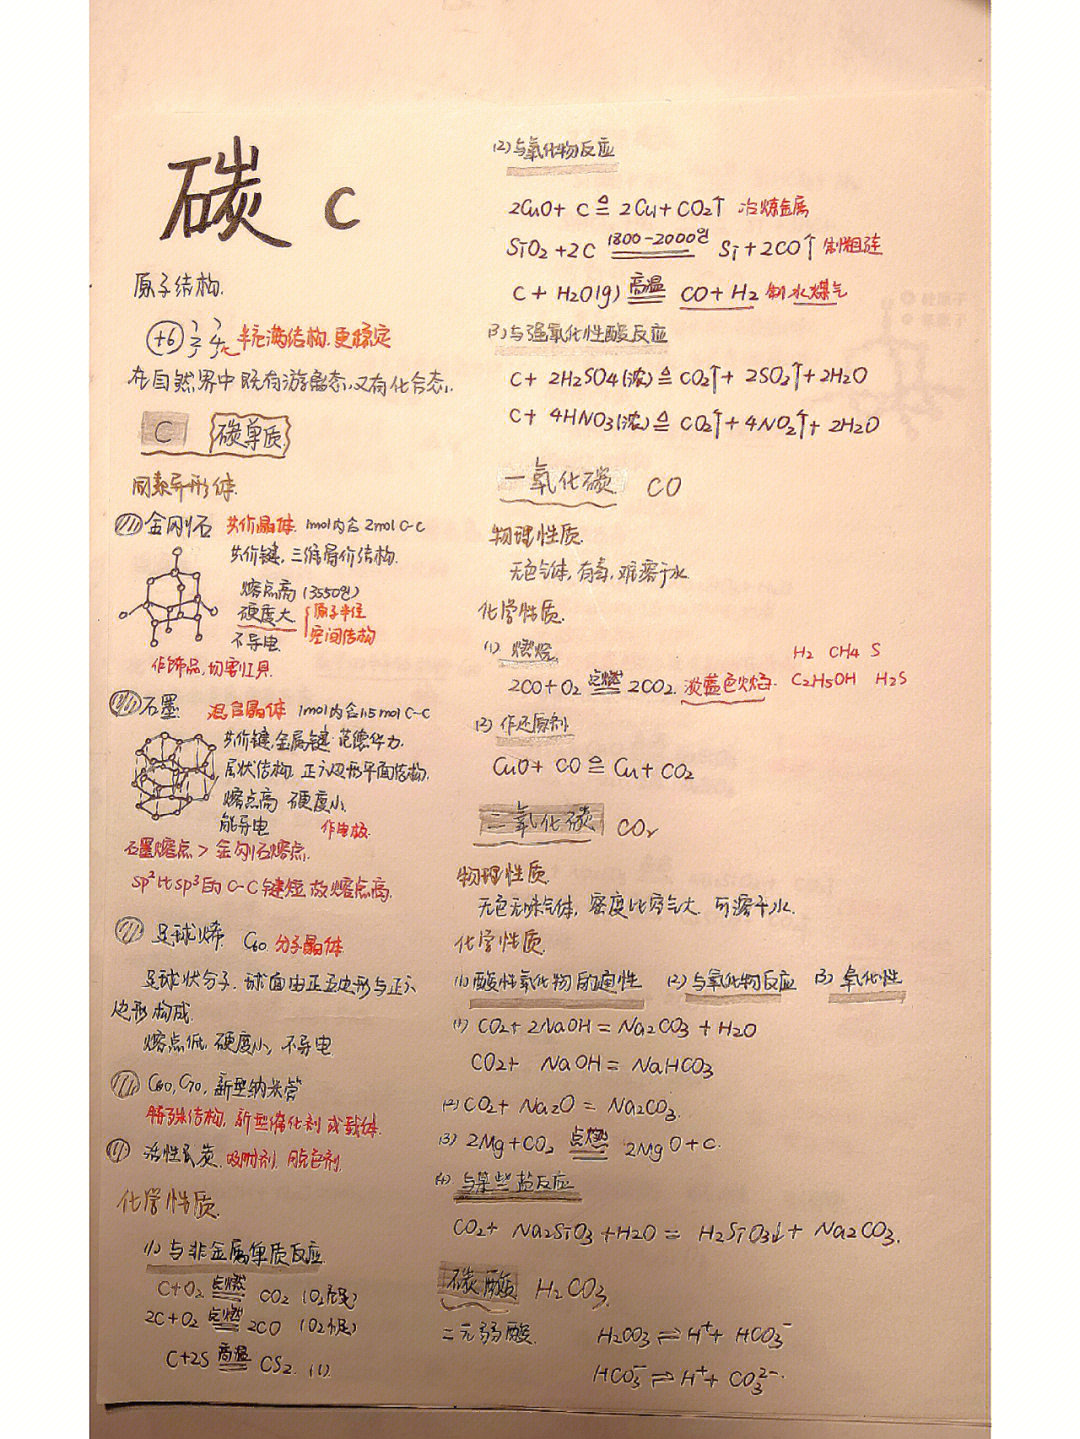 碳 C
原子结构.
+6 2 4 半充满结构.更稳定
在自然界中既有游离态,又有化合态.
C 碳单质.
同素异形体.
(1) 金刚石 共价晶体. 1mol内含2molC-C
共价键,三维骨价结构.
熔点高(3550℃)
硬度大 原子半径
空间结构
不导电.
作饰品,切割工具.
(2) 石墨. 混合晶体 1mol内含1.5molC-C
共价键,金属键 范德华力.
层状结构.正六边形平面结构.
熔点高 硬度小.
能导电 作电极.
石墨熔点 > 金刚石熔点.
sp²比sp³的C-C键短,故熔点高.
足球烯 C60. 分子晶体
足球状分子.球面由正五边形与正六
边形构成.
熔点低.硬度小,不导电
C60, C70, 新型纳米管
特殊结构,新型催化剂或载体.
活性炭. 吸附剂. 脱色剂.
化学性质.
(1) 与非金属单质反应
C+O2 点燃 CO2 (O2充足)
2C+O2 点燃 2CO (O2不足)
C+2S 高温 CS2. (l).
(2) 与氧化物反应
2CuO+ C ≙ 2Cu+ CO2↑ 冶炼金属
SiO2 +2C 1800-2000℃ Si+2CO↑ 制粗硅
C+ H2O(g) 高温 CO+H2 制水煤气
(3) 与强氧化性酸反应
C+ 2H2SO4(浓) ≙ CO2↑+ 2SO2↑+2H2O
C+ 4HNO3(浓) ≙ CO2↑+4NO2↑+ 2H2O
一氧化碳 CO
物理性质.
无色气体,有毒,难溶于水.
化学性质.
(1) 燃烧 H2 CH4 S
2CO+O2 点燃 2CO2. 淡蓝色火焰. C2H5OH H2S
(2) 作还原剂
CuO+ CO ≙ Cu+CO2
二氧化碳 CO2
物理性质.
无色无味气体, 密度比空气大. 可溶于水.
化学性质.
(1) 酸性氧化物的通性 (2) 与氧化物反应 (3) 氧化性
(1) CO2+ 2NaOH = Na2CO3 + H2O
CO2+ NaOH = NaHCO3
(2) CO2+ Na2O = Na2CO3.
(3) 2Mg+CO2 点燃 2MgO+C.
(4) 与某些盐反应
CO2+ Na2SiO3 +H2O = H2SiO3↓+ Na2CO3.
碳酸 H2CO3.
二元弱酸. H2CO3 ⇌ H⁺+ HCO3⁻
HCO3⁻ ⇌ H⁺+ CO3²⁻.